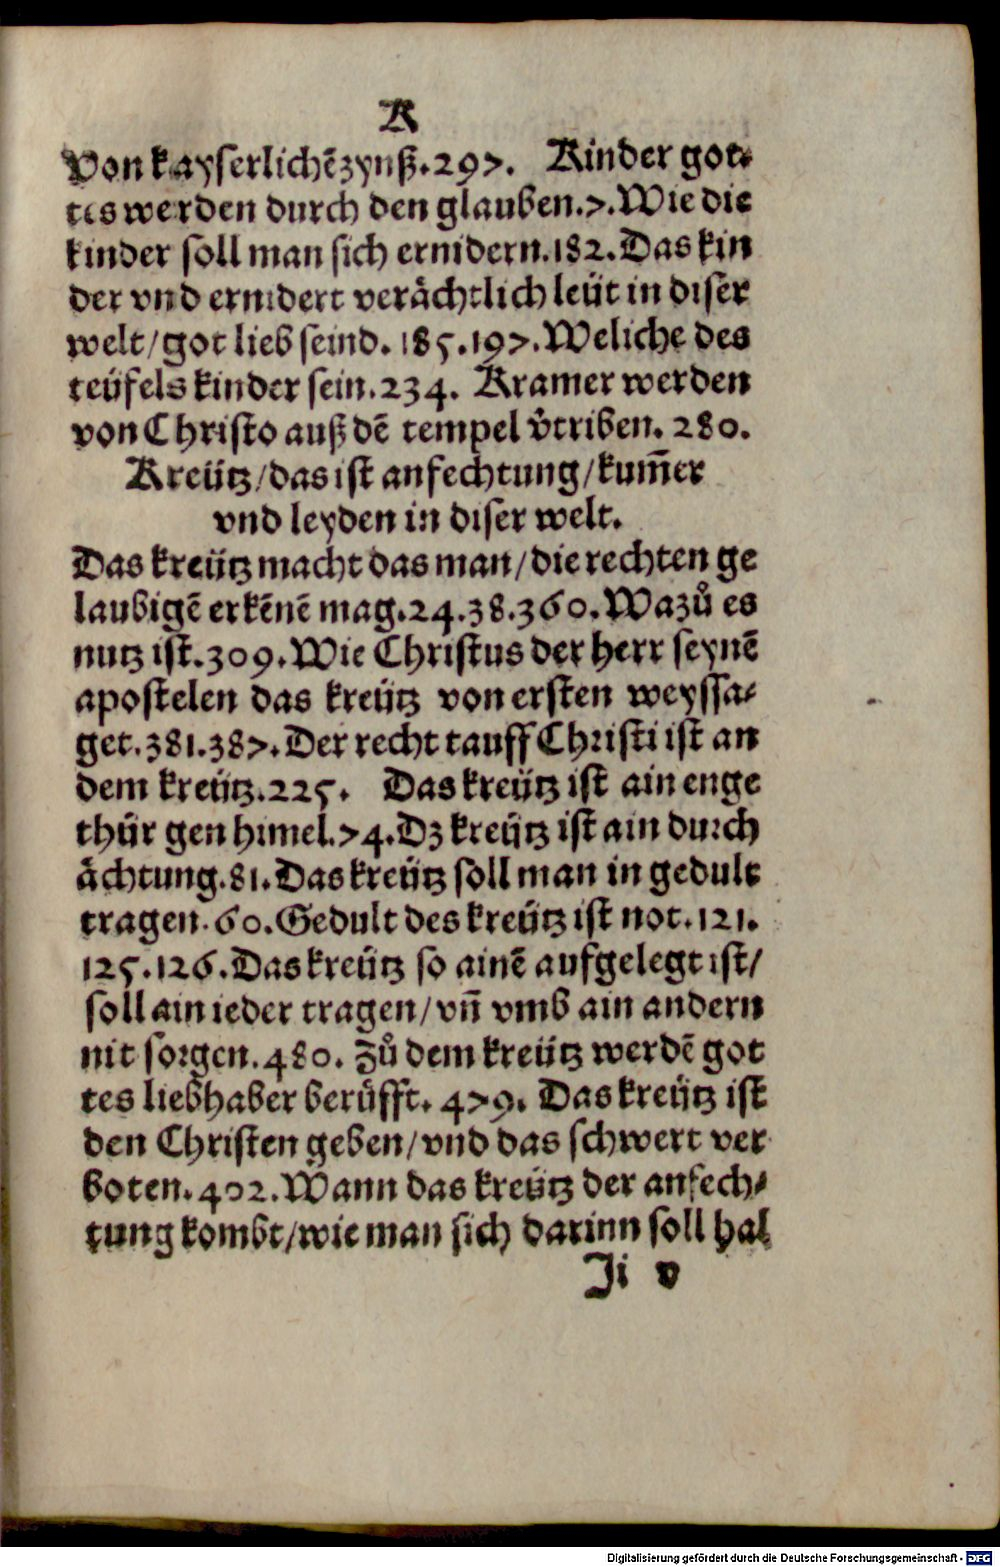 K
Von kayserlichẽ zynß.297. Kinder got⸗
tes werden durch den glauben.7. Wie die
kinder soll man sich ernidern.182. Das kin
der vnd ernidert verächtlich leüt in diser
welt/got lieb seind.185.197. Weliche des
teüfels kinder sein.234. Kramer werden
von Christo auß dẽ tempel v̊triben.280.
Kreütz/das ist anfechtung/kum̃er
vnd leyden in diser welt.
Das kreütz macht das man/die rechten ge
laubigẽ erkẽnẽ mag.24.38.360. Wazů es
nutz ist.309. Wie Christus der herr seynẽ
apostelen das kreütz von ersten weyssa⸗
get.381.387. Der recht tauff Christi ist an
dem kreütz.225. Das kreütz ist ain enge
thür gen himel.74. Dz kreütz ist ain durch
ächtung.81. Das kreütz soll man in gedult
tragen.60. Gedult des kreütz ist not.121.
125.126. Das kreütz so ainẽ aufgelegt ist/
soll ain ieder tragen/vñ vmb ain andern
nit sorgen.480. Zů dem kreütz werdẽ got
tes liebhaber berüfft.479. Das kreütz ist
den Christen geben/vnd das schwert ver
boten.402. Wann das kreütz der anfech⸗
tung kombt/wie man sich darinn soll hal
Ji v
Digitalisierung gefördert durch die Deutsche Forschungsgemeinschaft - DFG